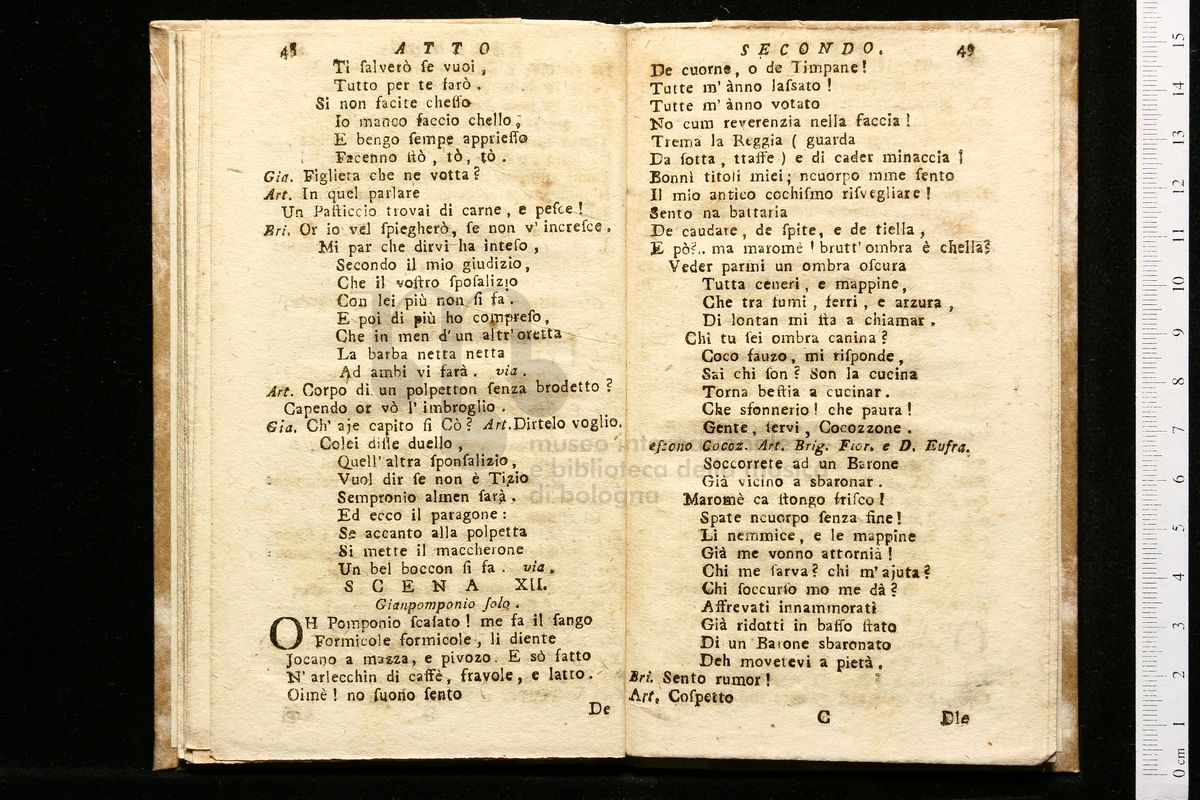 48 ATTO
Ti ſalverò ſe vuoi,
Tutto per te farò.
Si non facite cheſſo
Io manco faccio chello;
E bengo ſempe apprieſſo
Facenno ttò, tò, tò.
Gia. Figliera che ne votta?
Art. In quel parlare
Un Paſticcio trovai di carne, e peſce!
Bri. Or io vel ſpiegherò, ſe non v'increſce.
Mi par che dirvi ha inteſo,
Secondo il mio giudizio,
Che il voſtro ſpoſalizio
Con lei più non ſi fa.
E poi di più ho compreſo,
Che in men d'un altr'oretta
La barba netta netta
Ad ambi vi farà. via.
Art. Corpo di un polpetton ſenza brodetto?
Capendo or vò l'imbroglio.
Gia. Ch'aje capito ſi Cò? Art. Dirtelo voglio.
Colei diſſe duello,
Quell'altra ſponſalizio,
Vuol dir ſe non è Tizio
Sempronio almen ſarà.
Ed ecco il paragone:
Se accanto alla polpetta
Si mette il maccherone
Un bel boccon ſi fa. via.
SCENA XII.
Gianpomponio ſolo.
OH Pomponio ſcaſato! me fa il ſango
Formicole formicole, li diente
Jocano a mazza, e pivozo. E sò fatto
N'arlecchin di caffè, fravole, e latto.
Oimè! no ſuono ſento
De
SECONDO. 49
De cuorne, o de Timpane!
Tutte m'ànno laſſato!
Tutte m'ànno votato
No cum reverenzia nella faccia!
Trema la Reggia (guarda
Da ſotta, ttaſſe) e di cader minaccia!
Bonnì titoli miei; ncuorpo mme ſento
Il mio antico cochiſmo riſvegliare!
Sento na battaria
De caudare, de ſpite, e de tiella,
E pò?.. ma maromè! brutt'ombra è chella?
Veder parmi un ombra oſcura
Tutta ceneri, e mappine,
Che tra fumi, ferri, e arzura,
Di lontan mi ſta a chiamar.
Chi tu ſei ombra canina?
Coco fauzo, mi riſponde,
Sai chi ſon? Son la cucina
Torna beſtia a cucinar.
Che sfonnerio! che paura!
Gente, ſervi, Cocozzone.
eſcono Cocoz. Art. Brig. Fior. e D. Eufra.
Soccorrete ad un Barone
Già vicino a sbaronar.
Maromè ca ſtongo friſco!
Spate ncuorpo ſenza fine!
Li nemmice, e le mappine
Già me vonno attornià!
Chi me ſarva? chi m'ajuta?
Chi ſoccurſo mo me dà?
Affrevati innammorati
Già ridotti in baſſo ſtato
Di un Barone sbaronato
Deh movetevi a pietà.
Bri. Sento rumor!
Art. Coſpetto
C Dle
museo internazionale
e biblioteca della musica
di bologna
0 cm 1 2 3 4 5 6 7 8 9 10 11 12 13 14 15